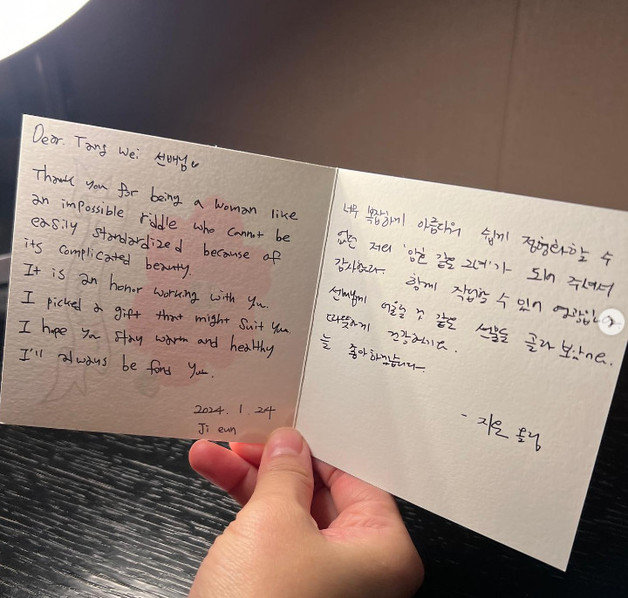 Dear. Tang Wei 선배님♥
Thank you for being a woman like
an impossible riddle who cannot be
easily standardized because of
its complicated beauty
It is an honor working with you
I picked a gift that might suit you.
I hope you stay warm and healthy
I'll always be fond you.
2024. 1 24
Ji eun
너무 복잡하게 아름다워 쉽게 정형화할 수
없는 저의 '암호 같은 그녀'가 되어 주셔서
감사합니다 함께 작업할 수 있어 영광입니
선배님께 어울릴 것 같은 선물을 골라 보았어요.
따뜻하게 건강하세요.
늘 좋아하겠습니다.
- 지은 올림